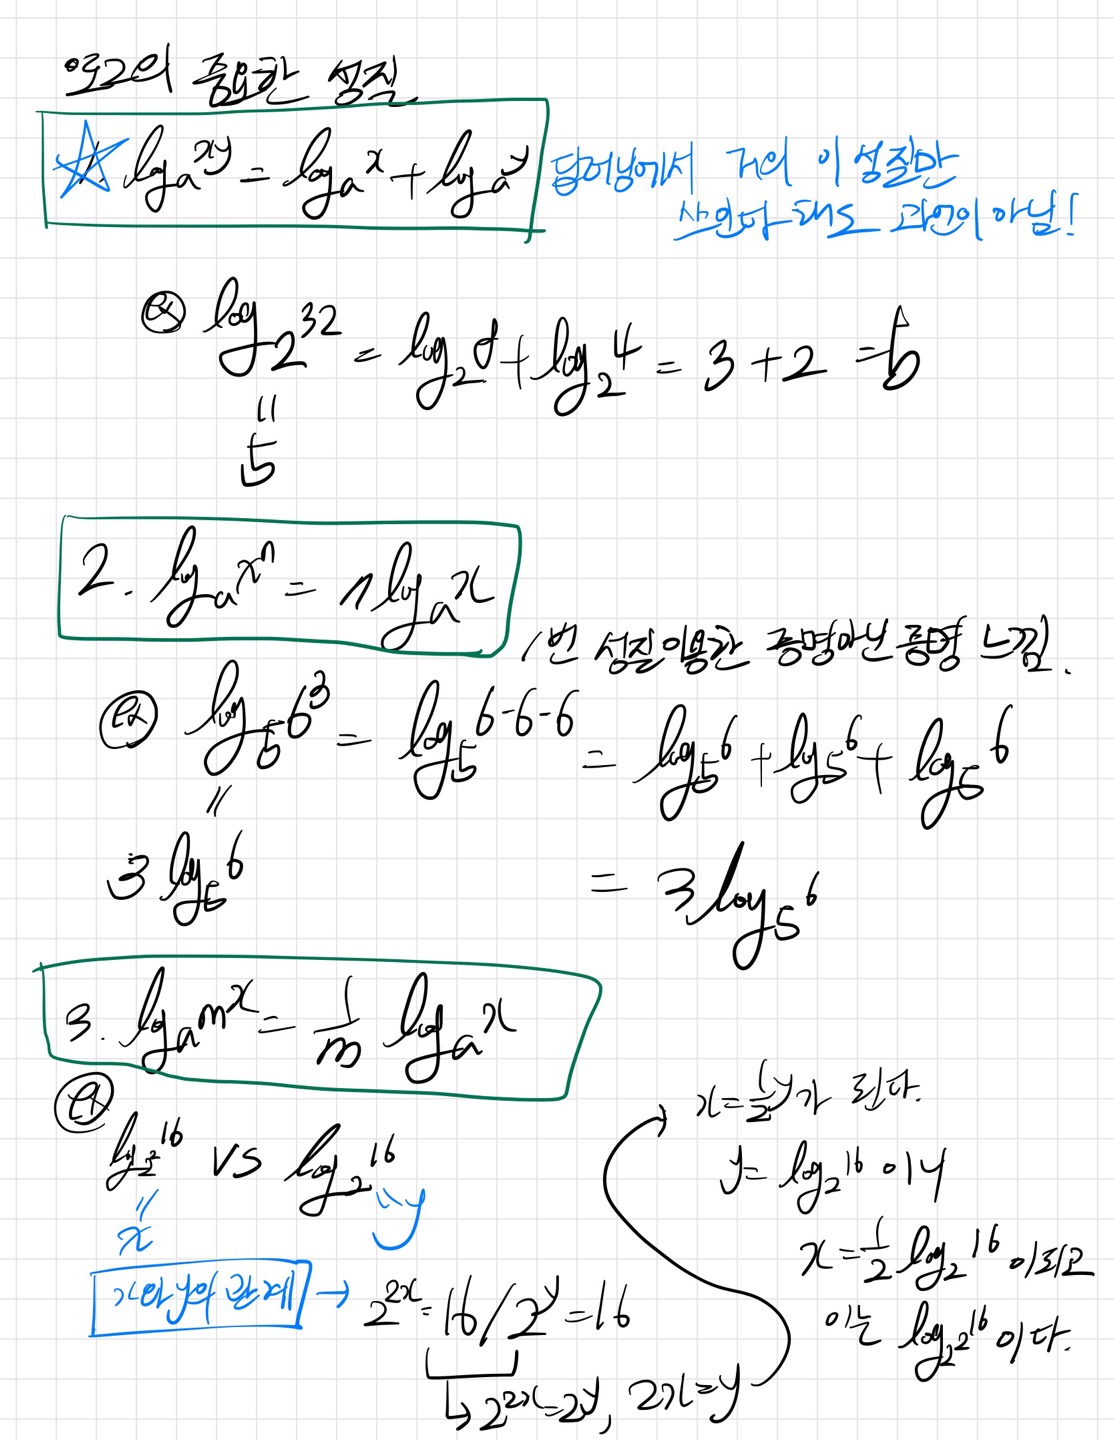 로그의 중요한 성질
☆ 1. logₐxy = logₐx + logₐy
딥러닝에서 거의 이 성질만
쓰인다 해도 과언이 아님!
ex log₂32 = log₂8 + log₂4 = 3 + 2 = 5
=
5
2. logₐxⁿ = n logₐx
1번 성질 이용한 증명아닌 증명 느낌.
ex log₅6³ = log₅6·6·6 = log₅6 + log₅6 + log₅6
=
3 log₅6
= 3 log₅6
3. log_{a^m} x = 1/m logₐx
ex
log_{2²} 16 vs log₂16
= x
= y
x와 y의 관계 → 2^{2x} = 16 / 2^y = 16
↳ 2^{2x} = 2^y, 2x = y
x = 1/2 y가 된다.
y = log₂16 이니
x = 1/2 log₂16 이되고
이는 log_{2²} 16 이다.